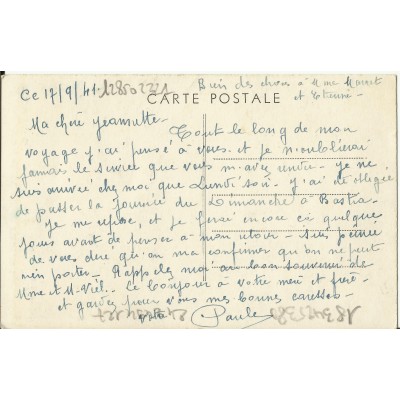 Ce 17/9/41. 12850221
Bien des choses à Mme
et Etienne
CARTE POSTALE
Ma chère Jeannette. Tout le long de mon
voyage j'ai pensé à vous. et je n'oublierai
jamais la soirée que vous m'avez. Je ne
suis arrivée chez moi que Lundi soir. J'ai dû obligée
de passer la journée du Dimanche à Bastia.
Je me repose, et je ferai encore ici quelque
jours avant de penser à mon retour. Suis peinée
de vous dire qu'on m'a confirmer qu'on ne peut
rien porter. Rappelez moi au bon souvenir de
Mme et M. Viel. Le bonjour à votre mère et frère
et gardez pour vous mes bonnes caresses.
Votre Paule